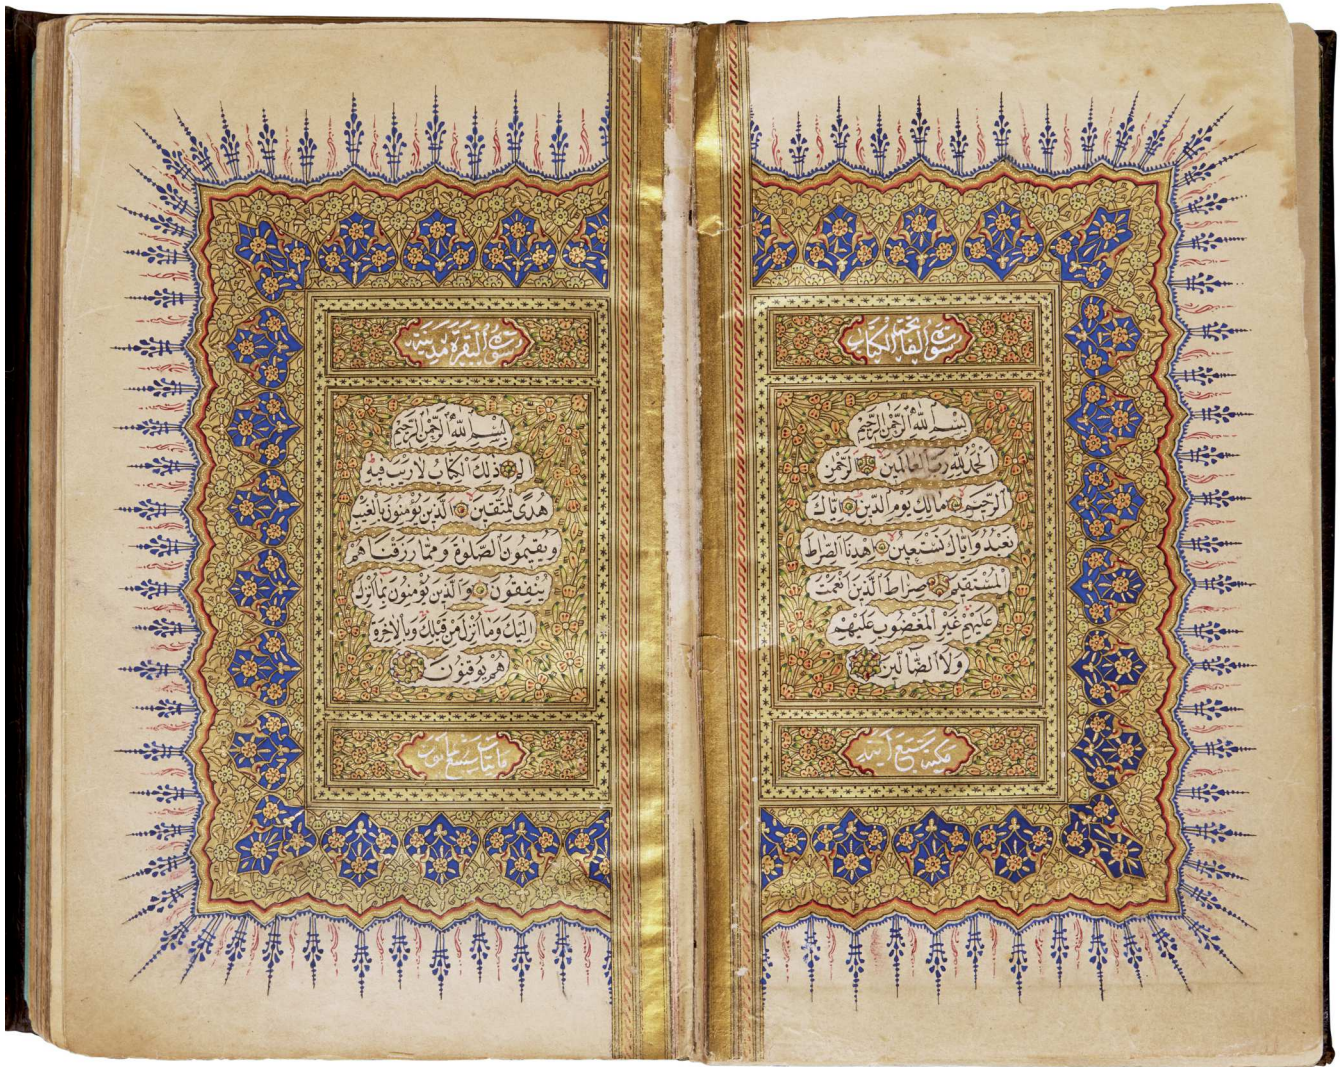 سورة الفاتحة الكتاب
بسم الله الرحمن الرحيم
الحمد لله رب العالمين الرحمن
الرحيم مالك يوم الدين اياك
نعبد واياك نستعين اهدنا الصراط
المستقيم صراط الذين انعمت
عليهم غير المغضوب عليهم
ولا الضالين
مكية سبع آية
سورة البقرة مدنية
بسم الله الرحمن الرحيم
الم ذلك الكتاب لا ريب فيه
هدى للمتقين الذين يؤمنون بالغيب
ويقيمون الصلوة ومما رزقناهم
ينفقون والذين يؤمنون بما انزل
اليك وما انزل من قبلك وبالاخرة
هم يوقنون